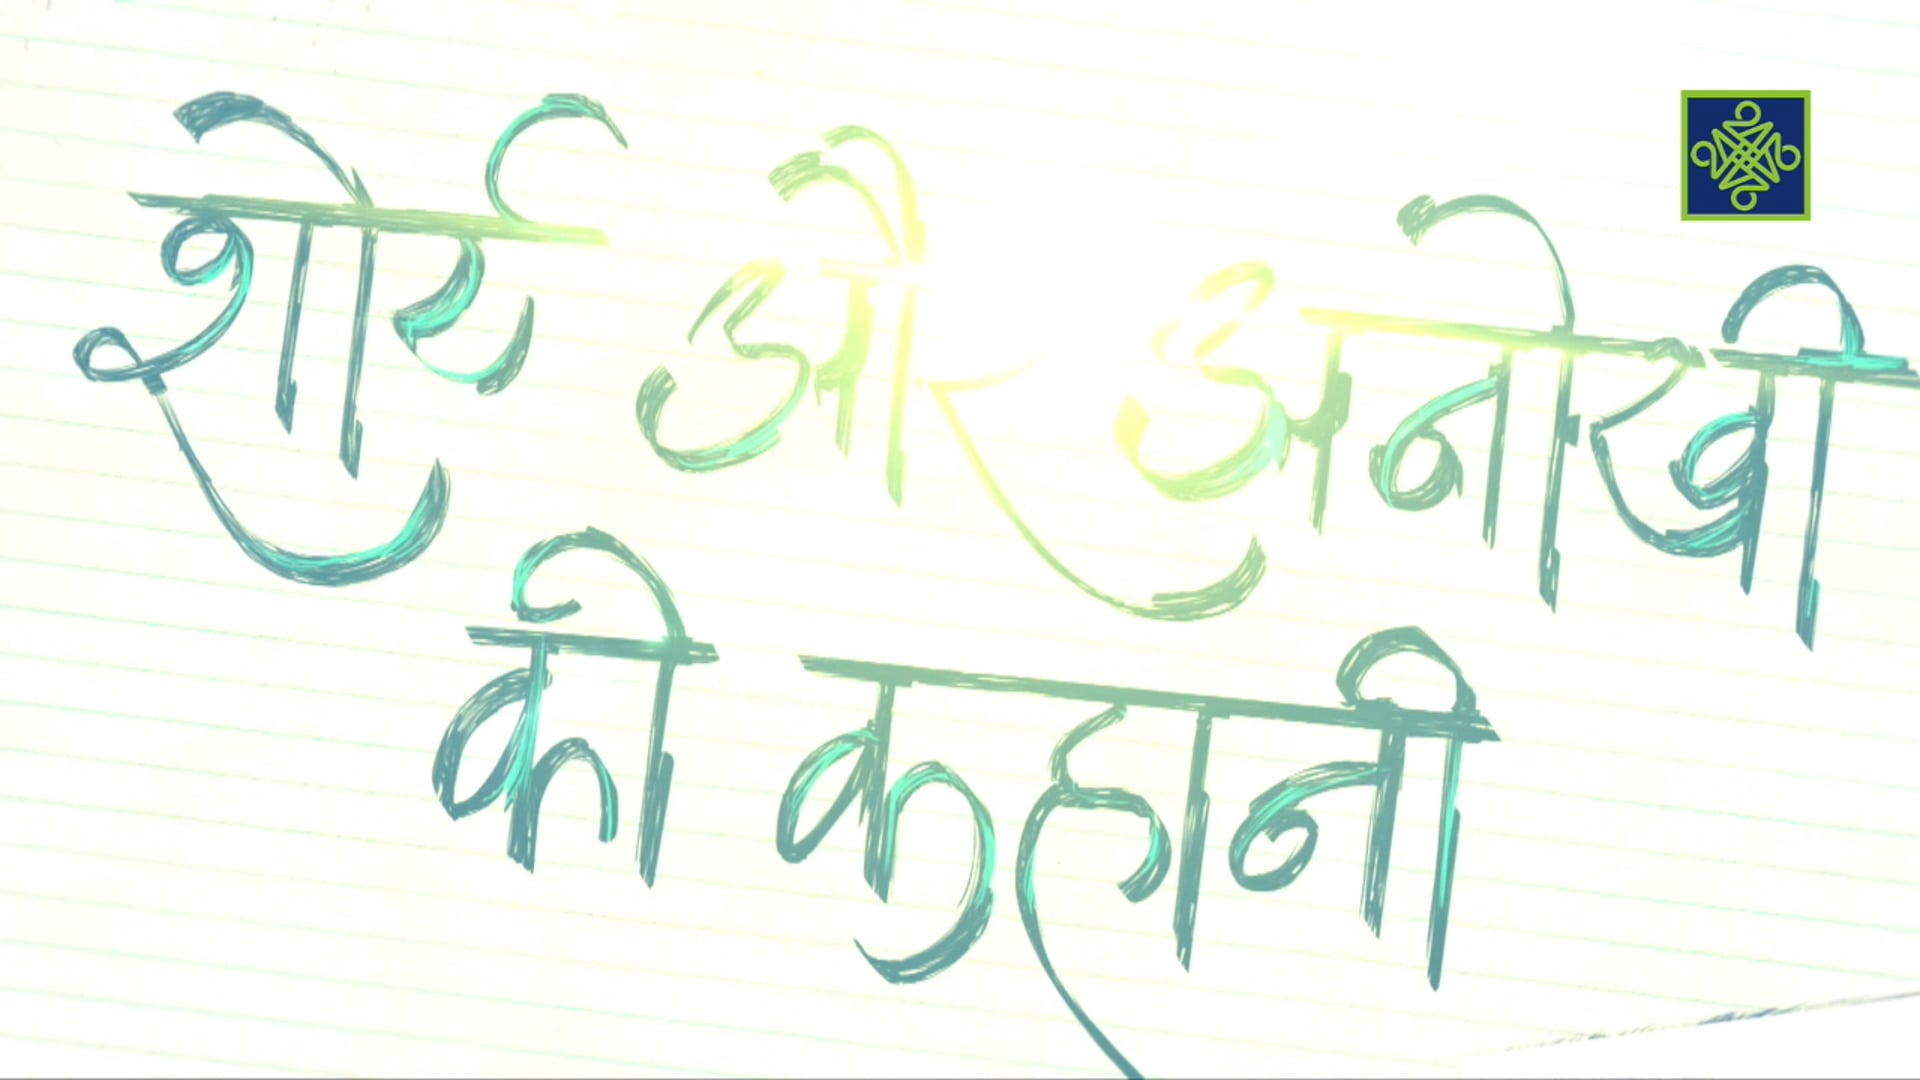 शोर्य और अनोखी
की कहानी